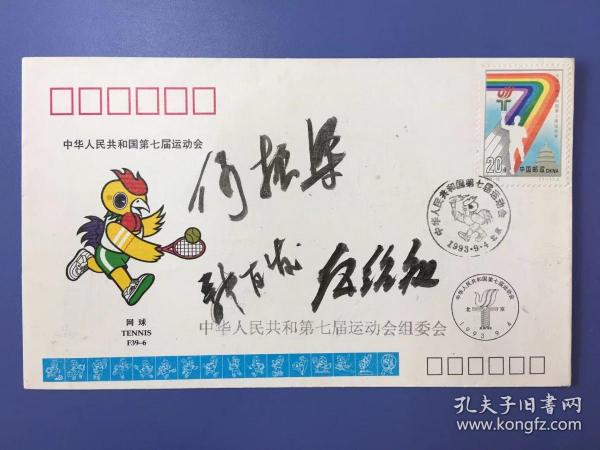 中华人民共和国第七届运动会
何振梁
魏纪中
中华人民共和第七届运动会组委会
网 球
TENNIS
F39-6
20分
中国邮政 CHINA
中华人民共和国第七届运动会
1993·9·4 北京
中华人民共和国第七届运动会
北 京
1993 9 4
孔夫子旧书网
www.kongfz.com